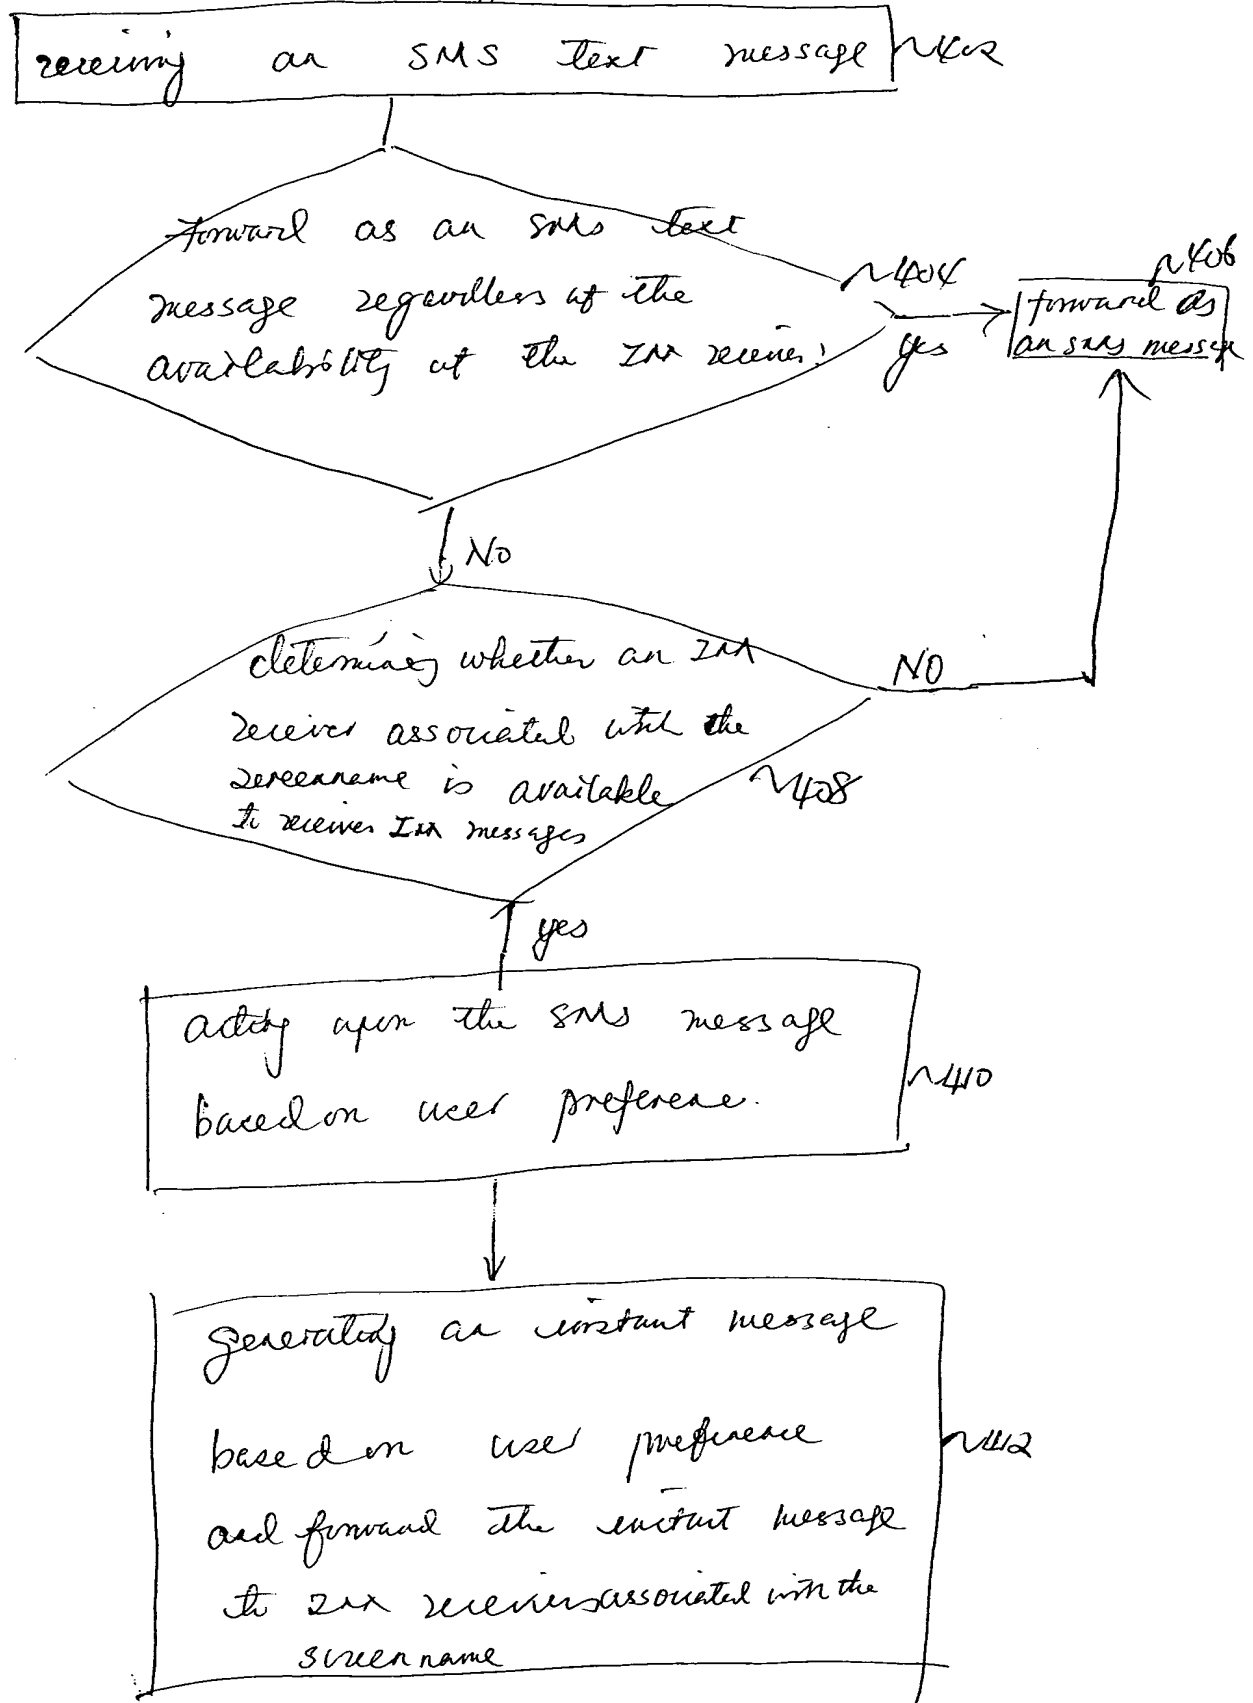 receiving an SMS text message ~402
forward as an SMS text
message regardless of the
availability of the IM receiver?
~404
yes
~406
forward as
an SMS messege
NO
determining whether an IM
receiver associated with the
screenname is available
to receives IM messages
NO
~408
yes
acting upon the SMS message
based on user preference.
~410
generating an instant message
based on user preference
and forward the instant message
to IM receivers associated with the
screen name
~412